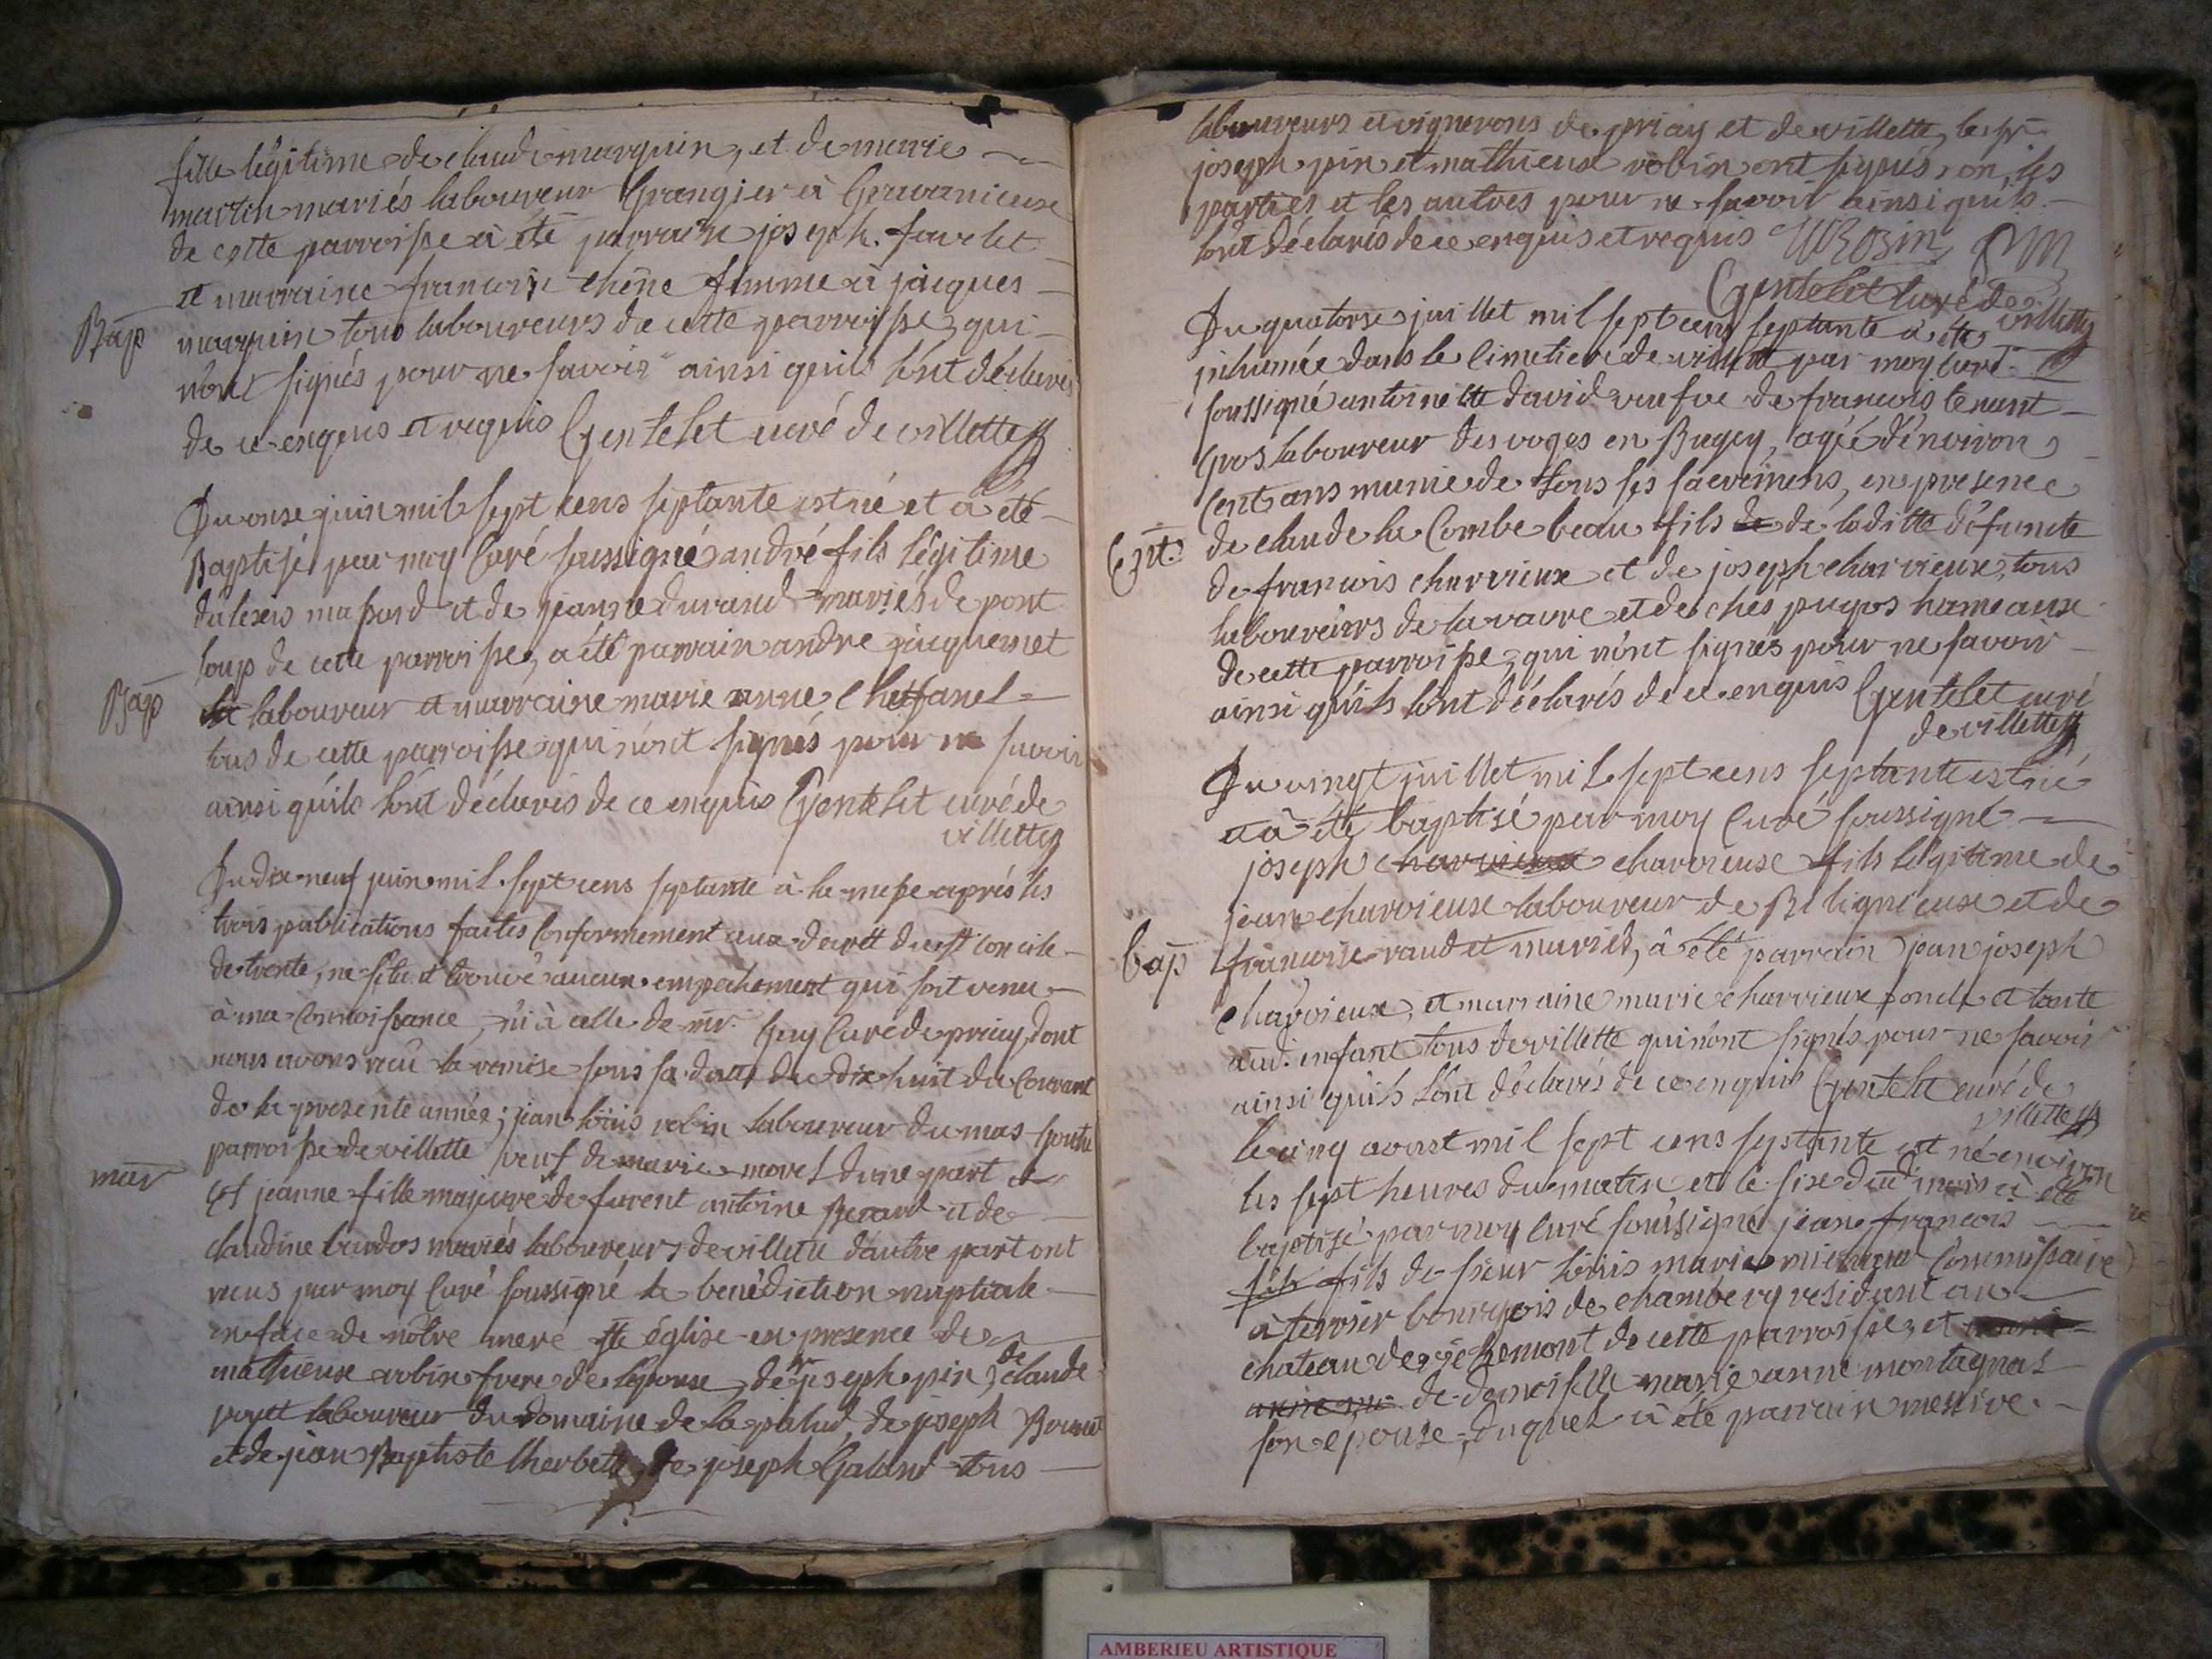 fille légitime de claude marquin, et de marie
martin mariés laboureur Grangier à Gravanieuse
de cette parroisse à été parrain joseph. favelet
et marraine francoise chêne femme à jacques
Bap
marquin tous laboureurs de cette parroisse, qui
n'ont signés pour ne savoir ainsi quils l'ont déclarés
de ce enquis et requis Gentelet curé de villette
Du onse juin mil sept cens septante est né et à été
Baptisé par moy Curé soussigné andré fils légitime
d'alexis massard et de jeanne durand mariés de pont
loup de cette parroisse, a été parrain andre jacquemet
Bap
laboureur et marraine marie anne
tous de cette parroisse qui n'ont signés pour ne savoir
ainsi quils l'ont déclarés de ce enquis Gentelet curé de
villette
Du dix neuf juin mil sept cens septante à la messe après les
trois publications faites Conformement aux decret du st concile
de trente, ne s'étant trouvé aucun empechement qui soit venu
à ma Connoissance, ni à celle de mr. Guy Curé de priay, dont
nous avons reçu la remise sous sa datte du dix huit du Courant
de la presente année; jean loüis robin laboureur du mas
parroisse de villette veuf de marie morel d'une part et
mar
et jeanne fille majeure de furent antoine Berard et de
claudine mariés laboureurs de villette d'autre part ont
reçus par moy Curé soussigné la benédiction nuptiale
en face de nôtre mere ste église en presence de
mathieux robin frere de l'epoux, de sr joseph pin, de claude
laboureur du domaine de la palud, de joseph
et de jean Baptiste lherbette, de joseph Galand tous
laboureurs et vignerons de priay et de villette, le sr
joseph pin et mathieux robin ont signés, on, les
parties et les autres pour ne savoir ainsi quils
l'ont déclarés de ce enquis et requis MRobin Pin
Gentelet curé de
villette
Du quatorse juillet mil sept cens septante à été
inhumée dans le Cimetiere de villette par moy curé
soussigné antoinette david veufve de francois tenant
Gros laboureur des voges en Bugey, agée d'environ
Cent ans munie de tous ses sacremens, en presence
Ent.
de claude la Combe beau fils de de laditte défuncte
de francois charvieux et de joseph charvieux, tous
laboureurs de la vavre et de chés pugos hameaux
de cette parroisse, qui n'ont signés pour ne savoir
ainsi qu'ils l'ont déclarés de ce enquis Gentelet curé
de villette
Du vingt juillet mil sept cens septante est né
et à été baptisé par moy Curé soussigné
joseph charvieux charvieux fils légitime de
jean charvieux laboureur de Bélignieux et de
bap
francoise mariés, à été parrain jean joseph
Charvieux, et marraine marie charvieux oncle et tante
aud. enfant tous de villette qui n'ont signés pour ne savoir
ainsi qu'ils l'ont déclarés de ce enquis Gentelet curé de
villette
le cinq aoust mil sept cens septante est né environ
les sept heures du matin et le sixe dud. mois à été
baptisé par moy curé soussigné jean francois
fils fils de sieur loüis marie Commissaire
à terrier bourgeois de chambery residant au
chateau de de cette parroisse, et
de demoiselle marie anne montagnat
son epouse, duquel à été parrain messire
AMBERIEU ARTISTIQUE